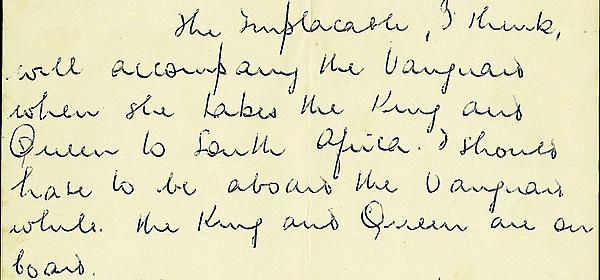 The Implacable, I think,
will accompany the Vanguard
when she takes the King and
Queen to South Africa. I should
hate to be aboard the Vanguard
while. the King and Queen are on
board.